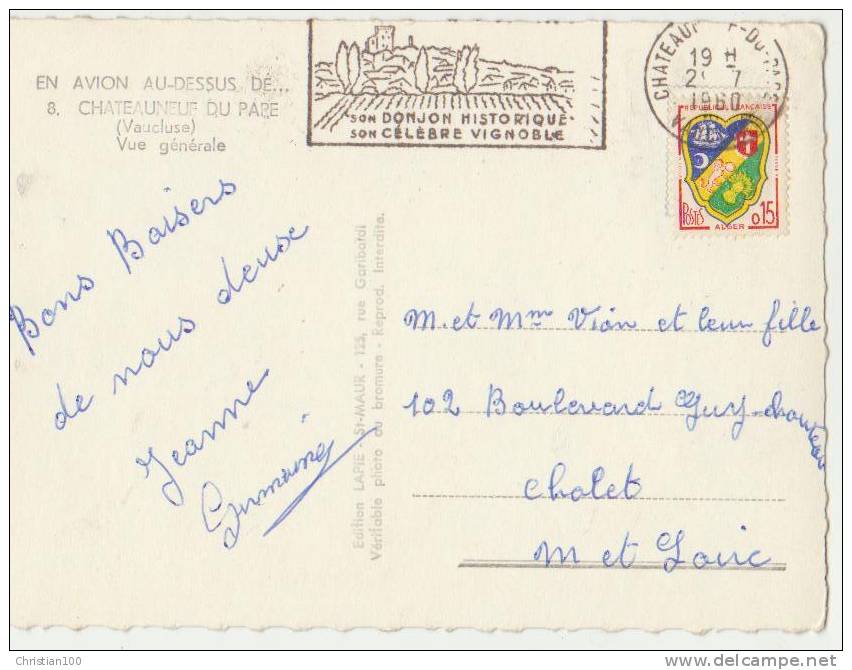 EN AVION AU-DESSUS DE...
8. CHATEAUNEUF DU PAPE
(Vaucluse)
Vue générale
SON DONJON HISTORIQUE
SON CÉLÈBRE VIGNOBLE
19 H
1960
REPUBLIQUE FRANÇAISE
POSTES
0,15
ALGER
Bons Baisers
de nous deux
Jeanne
Germaine
Edition LAPIE - St-MAUR - 123, rue Garibaldi
Véritable photo au bromure - Reprod. Interdite.
M. et Mme Vion et leur fille
102 Boulevard Guy-chouteau
Cholet
M et Loire
Christian100
www.delcampe.net